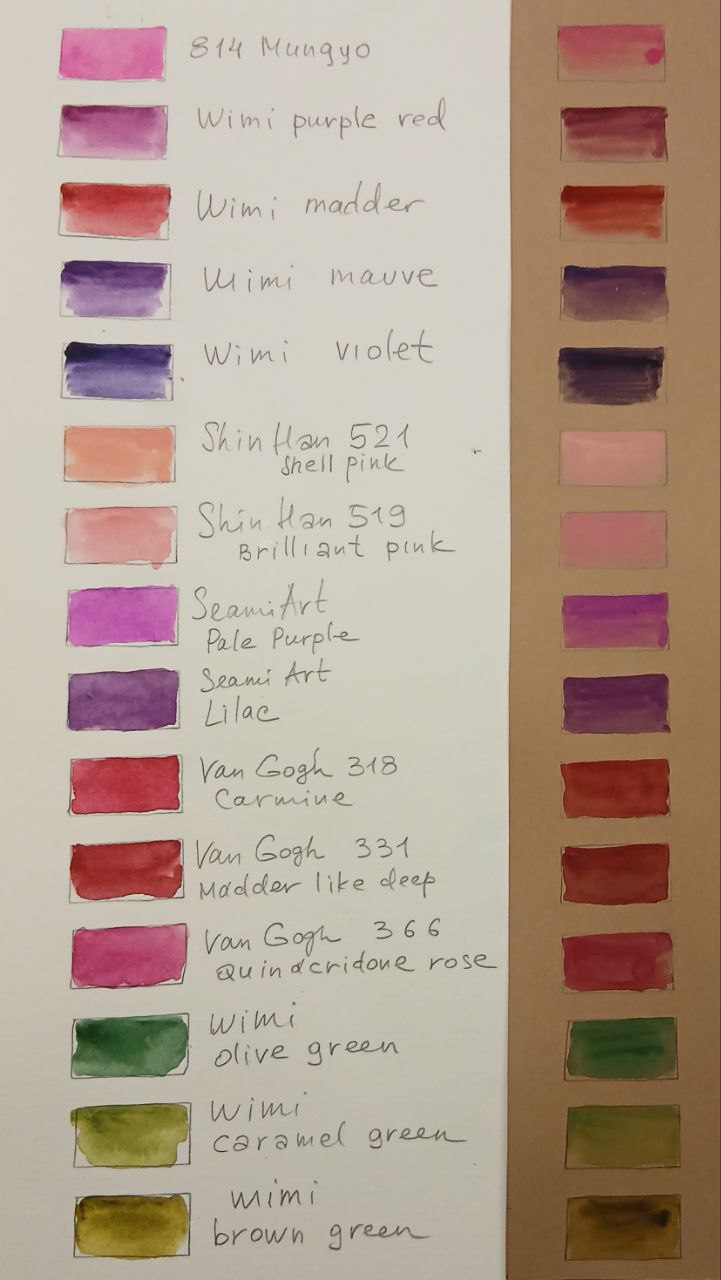 814 Mungyo
Wimi purple red
Wimi madder
Wimi mauve
Wimi violet
ShinHan 521
Shell pink
ShinHan 519
Brilliant pink
SeamiArt
Pale Purple
Seami Art
Lilac
Van Gogh 318
Carmine
Van Gogh 331
Madder like deep
Van Gogh 366
Quinacridone rose
Wimi
olive green
Wimi
caramel green
Wimi
brown green